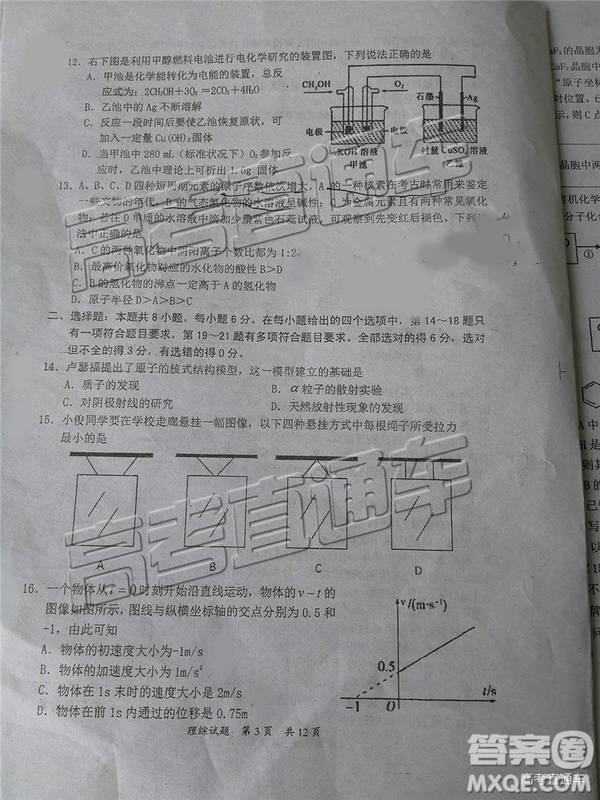 12. 右下图是利用甲醇燃料电池进行电化学研究的装置图，下列说法正确的是
A. 甲池是化学能转化为电能的装置，总反
应式为：2CH₃OH+3O₂=2CO₂+4H₂O
B. 乙池中的Ag不断溶解
C. 反应一段时间后要使乙池恢复原状，可
加入一定量Cu(OH)₂固体
D. 当甲池中280 mL（标准状况下）O₂参加反
应时，乙池中理论上可析出1.6g 固体
CH₃OH
O₂
石墨
Ag
电极
电极
KOH 溶液
过量 CuSO₄ 溶液
甲池
乙池
13. A、B、C、D四种短周期元素的原子序数依次增大，A的一种核素在考古时常用来鉴定
一些文物的年代，B的气态氢化物的水溶液呈碱性；C为金属元素且有两种常见氧化
物；若往D单质的水溶液中滴加少量紫色石蕊试液，可观察到先变红后褪色。下列
法中正确的是
A. C的两种氧化物中阴阳离子个数比都为1:2
B. 最高价氧化物对应的水化物的酸性B＞D
C. B的氢化物的沸点一定高于A的氢化物
D. 原子半径D＞A＞B＞C
二、选择题：本题共8小题，每小题6分。在每小题给出的四个选项中，第14～18题只
有一项符合题目要求，第19～21题有多项符合题目要求。全部选对的得6分，选对
但不全的得3分，有选错的得0分。
14. 卢瑟福提出了原子的核式结构模型，这一模型建立的基础是
A. 质子的发现 B. α粒子的散射实验
C. 对阴极射线的研究 D. 天然放射性现象的发现
15. 小俊同学要在学校走廊悬挂一幅图像，以下四种悬挂方式中每根绳子所受拉力
最小的是
A B C D
16. 一个物体从t=0时刻开始沿直线运动，物体的v-t的
图像如图所示，图线与纵横坐标轴的交点分别为0.5和
-1，由此可知
A. 物体的初速度大小为-1m/s
B. 物体的加速度大小为1m/s²
C. 物体在1s末时的速度大小是2m/s
D. 物体在前1s内通过的位移是0.75m
v/(m·s⁻¹)
0.5
-1 O t/s
理综试题 第3页 共12页
高考直通车
高考直通车
答案卷
高考直通车
MXQE.COM